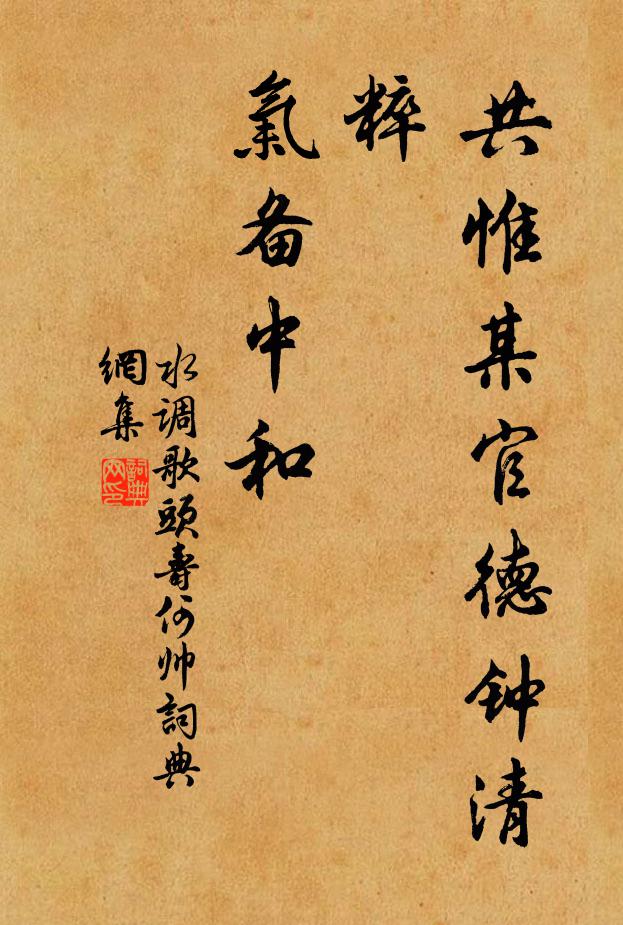 共惟某官德钟清
粹
氣备中和
水调歌頭壽何帅詞典
網集
詞典网印